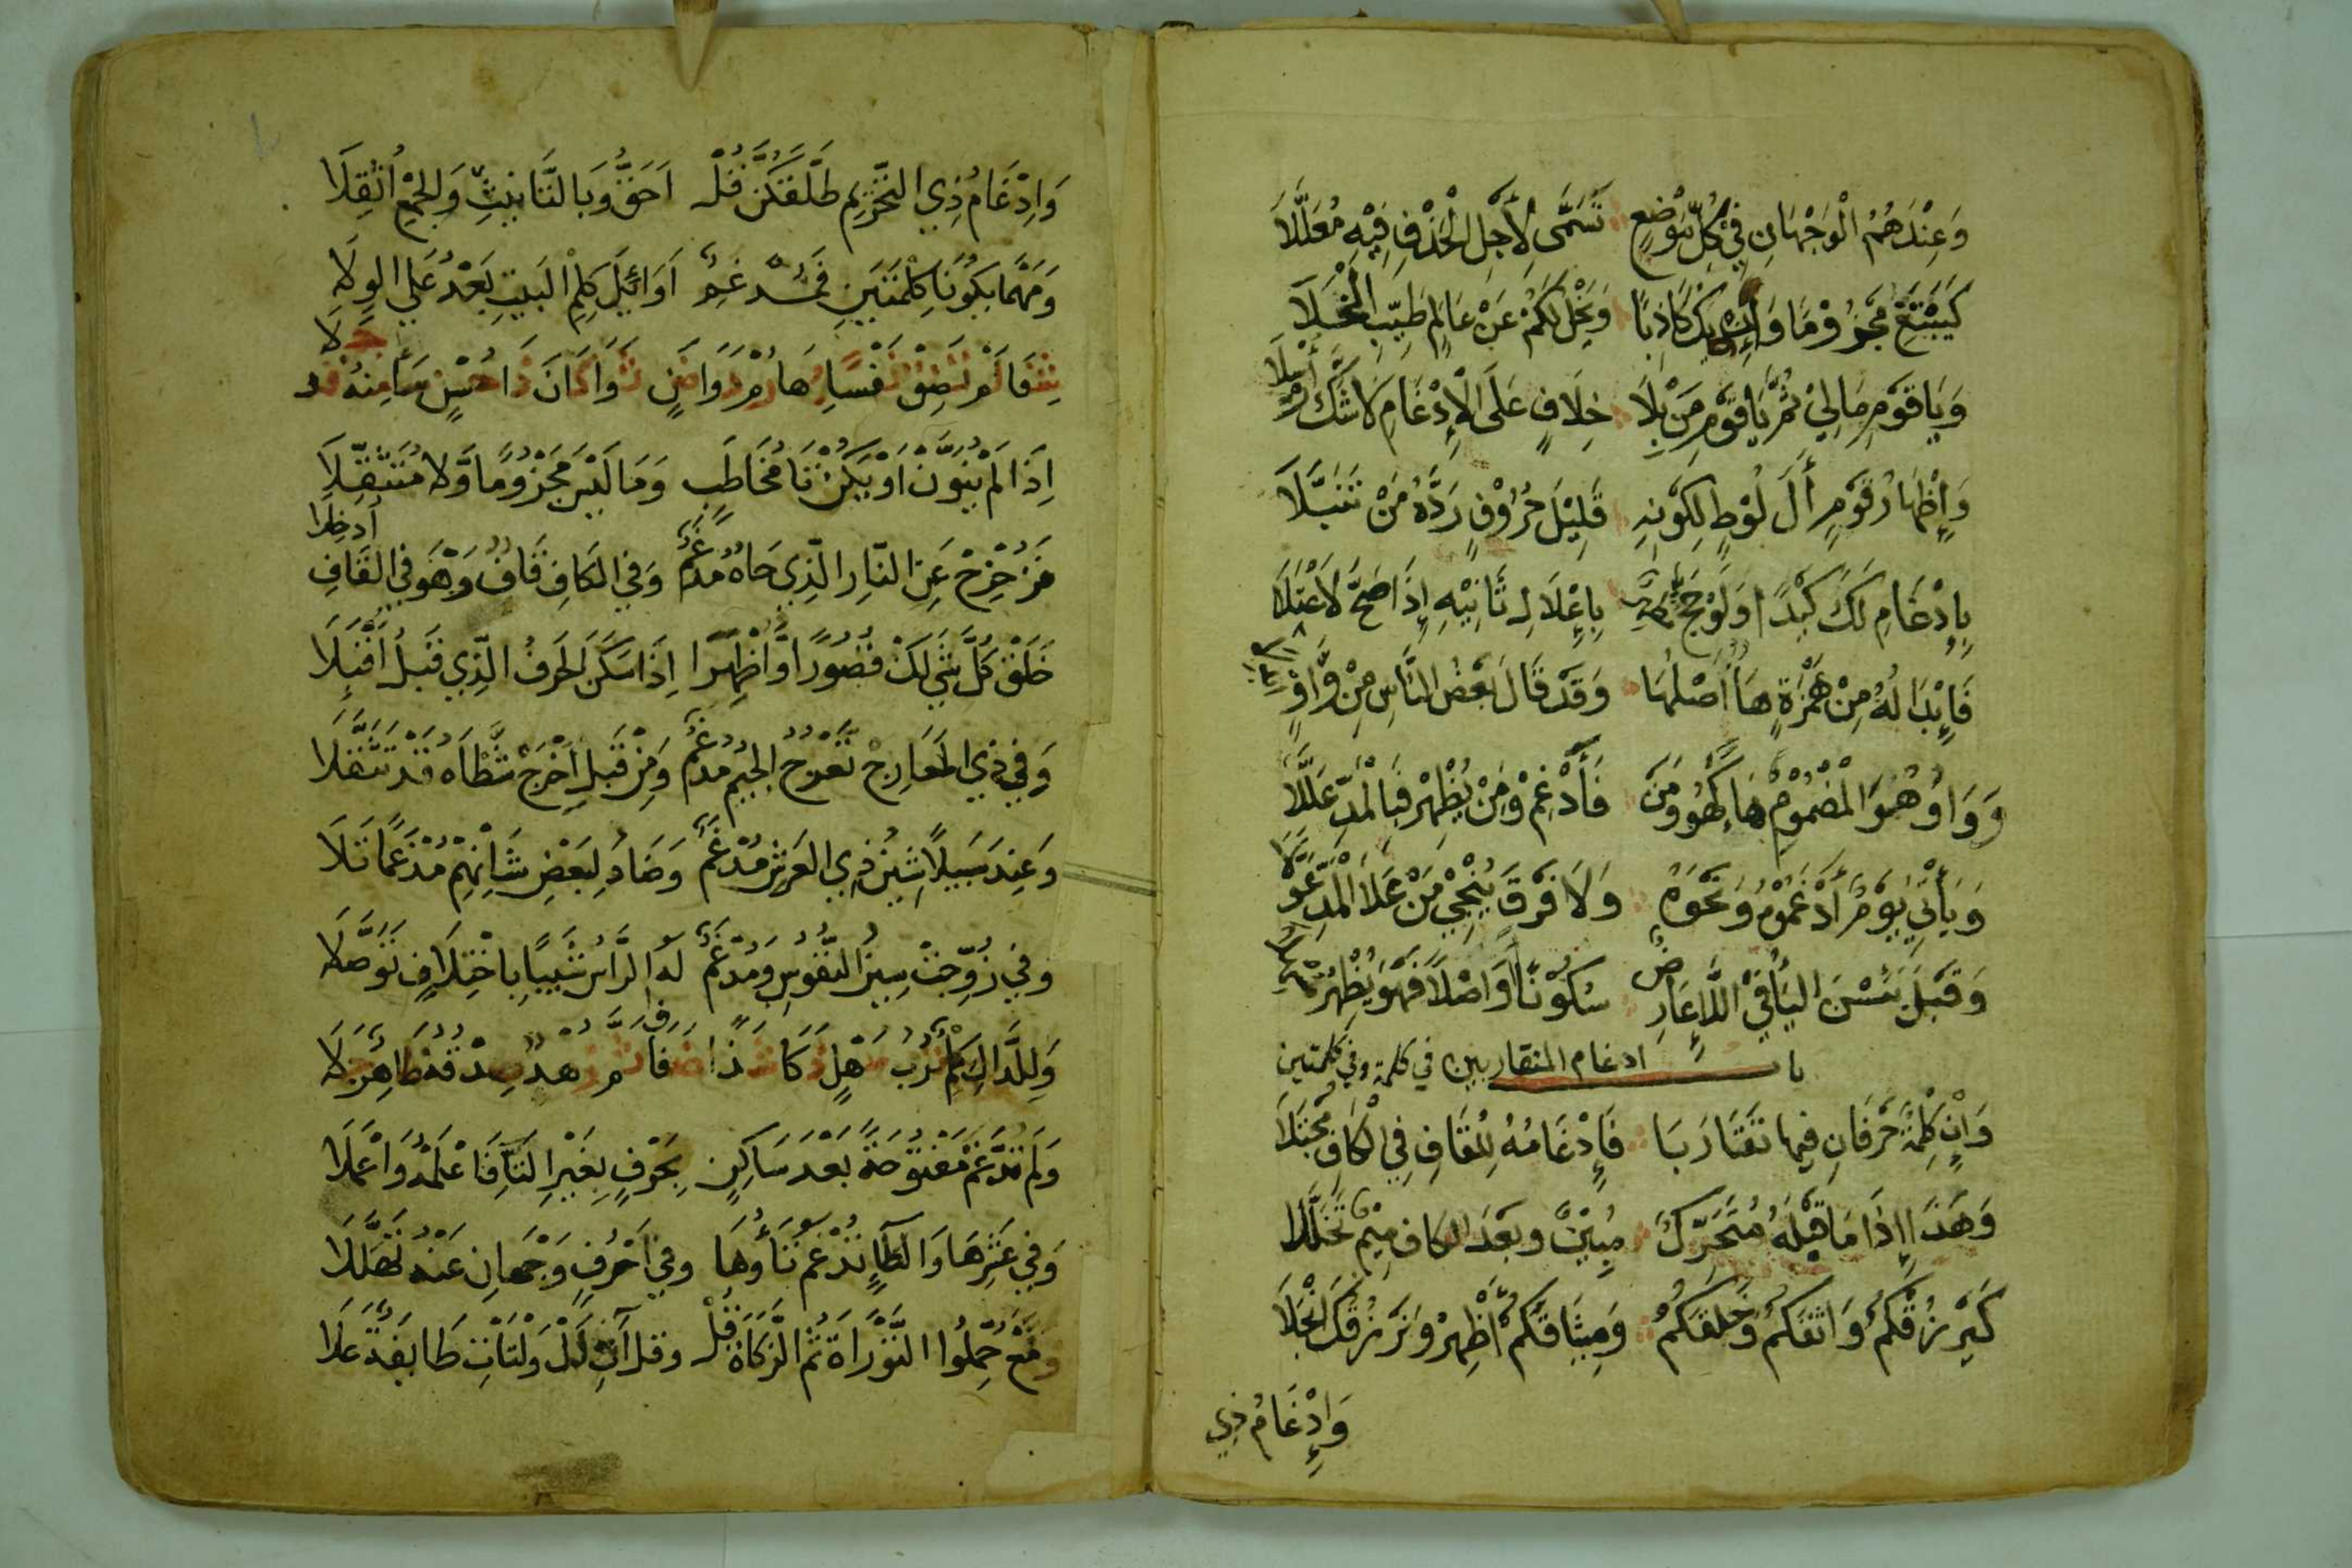 وَعِنْدَهُمُ الْوَجْهَانِ فِي كُلِّ مَوْضِعٍ تَسَمَّى لِأَجْلِ الْحَذْفِ فِيْهِ مُعَلَّلَا
كَيَبْتَغِ مَجْزُوْمًا وَإِنْ يَكُ كَاذِبًا وَيَخْلُ لَكُمْ عَنْ عَالِمٍ طَيِّبِ الْخَلَا
وَيَا قَوْمِ مَا لِيْ ثُمَّ يَا قَوْمِ مَنْ بِلَا خِلَافٍ عَلَى الْإِدْغَامِ لَا شَكَّ أُرْسِلَا
وَإِظْهَارُ قَوْمٍ أَلَ لُوْطٍ لِكَوْنِهِ قَلِيْلَ حُرُوْفٍ رَدَّهُ مَنْ تَنَبَّلَا
بِإِدْغَامِ لَكَ كَيْدًا وَلَوْ حَجَّ مُظْهِرٌ بِإِعْلَالِ ثَانِيْهِ إِذَا صَحَّ لَاعْتَلَا
فَإِبْدَالُهُ مِنْ هَمْزَةٍ هَاءٌ أَصْلُهَا وَقَدْ قَالَ بَعْضُ النَّاسِ مِنْ وَّاوٍ ابْدِلَا
وَوَاوُ هُوَ الْمَضْمُوْمُ هَاءً كَهُو وَمَنْ فَأَدْغِمْ وَمَنْ يُظْهِرْ فَبِالْمَدِّ عَلَّلَا
وَيَأْتِيَ يَوْمٌ أَدْغَمُوْهُ وَنَحْوَهُ وَلَا فَرْقَ يُنْجِيْ مَنْ عَلَا الْمَدِّ عَوَّلَا
وَقَبْلَ يَئِسْنَ الْيَاءُ فِيْ اللَّاءِ عَارِضٌ سُكُوْنًا أَوَ اصْلًا فَهْوَ يُظْهِرُ مُسْهِلَا
باب ادغام المتقاربين في كلمة وفي كلمتين
وَإِنْ كِلْمَةٌ حَرْفَانِ فِيهَا تَقَارَبَا فَإِدْغَامُهُ لِلْقَافِ فِي الْكَافِ مُجْتَلَا
وَهَذَا إِذَا مَا قَبْلَهُ مُتَحَرِّكٌ مُبِيْنٌ وَبَعْدَ الْكَافِ مِيْمٌ تَخَلَّلَا
كَيَرْزُقْكُمُ وَاثَقَكُمُ وَخَلَقَكُمُ وَمِيثَاقَكُمْ أَظْهِرْ وَنَرْزُقُكَ انْجَلَا
وَإِدْغَامُ ذِي
وَإِدْغَامُ ذِي التَّحْرِيمِ طَلَّقَكُنَّ قُلْ أَحَقُّ وَبِالتَّأْنِيثِ وَالْجَمْعِ أُثْقِلَا
وَمَهْمَا يَكُونَا كِلْمَتَيْنِ فَمُدْغِمٌ أَوَائِلَ كِلْمِ الْبَيْتِ بَعْدُ عَلَى الْوِلَا
شِفَا لَمْ تَضِقْ نَفْسًا بِهَا رُمْ دَوَا ضَنٍ ثَوَا كَانَ ذَا حُسْنٍ سَأَى مِنْهُ قَدْ جَلَا
إِذَا لَمْ يُنَوَّنْ أَوْ يَكُنْ تَا مُخَاطَبٍ وَمَا لَيْسَ مَجْزُومًا وَلَا مُتَثَقِّلَا
فَزُحْزِحَ عَنِ النَّارِ الَّذِي حَاهُ مُدْغَمٌ وَفِي الْكَافِ قَافٌ وَهْوَ فِي الْقَافِ أُدْخِلَا
خَلَقْ كُلَّ شَيْ لَكَ قُصُورًا وَأَظْهِرَا إِذَا سَكَنَ الْحَرْفُ الَّذِي قَبْلُ أُقْبِلَا
وَفِي ذِي الْمَعَارِجِ تَعْرُجُ الْجِيمُ مُدْغَمٌ وَمِنْ قَبْلِ أَخْرَجَ شَطْأَهُ قَدْ تَثَقَّلَا
وَعِنْدَ سَبِيلًا شِينُ ذِي الْعَرْشِ مُدْغَمٌ وَضَادُ لِبَعْضِ شَأْنِهِمْ مُدْغَمًا تَلَا
وَفِي زُوِّجَتْ سِينُ النُّفُوسُ وَمُدْغَمٌ لَهُ الرَّأْسُ شَيْبًا بِاخْتِلَافٍ تَوَصَّلَا
وَلِلدَّالِ كِلْمٌ تُرْبُ سَهْلٍ ذَكَا شَذًا ضَفَا ثُمَّ زُهْدٌ صِدْقُهُ ظَاهِرٌ جَلَا
وَلَمْ تُدَّغَمْ مَفْتُوْحَةً بَعْدَ سَاكِنٍ بِحَرْفٍ بِغَيْرِ التَّاءِ فَاعْلَمْهُ وَاعْمَلَا
وَفِي عَشْرِهَا وَالطَّاءِ تُدْغَمُ تَاؤُهَا وَفِي أَحْرُفٍ وَجْهَانِ عَنْهُ تَهَلَّلَا
فَمَعْ حُمِّلُوا التَّوْرَاةَ ثُمَّ الزَّكَاةَ قُلْ وَقُلْ آتِ ذَلْ وَلْتَأْتِ طَائِفَةٌ عَلَا